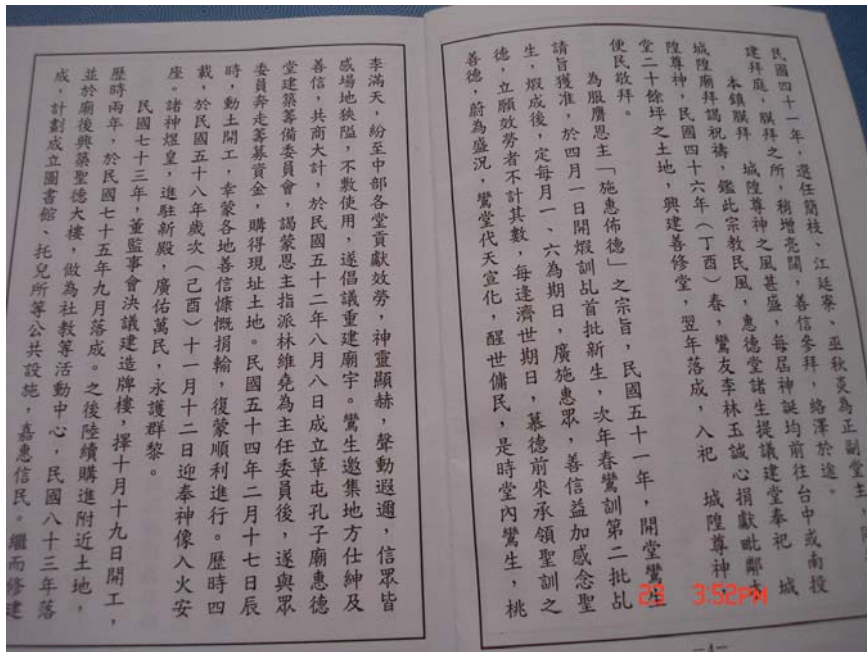 民國四十一年，選任簡枝、江廷寮、巫秋炎為正副堂主，
建拜庭，朝拜之所，稍增亮闊，善信參拜，絡澤於途。
本鎮朝拜　城隍尊神之風甚盛，每屆神誕均前往台中或南投
城隍廟拜謁祝禱，鑑此宗教民風，惠德堂諸生提議建堂奉祀　城
隍尊神，民國四十六年（丁酉）春，鸞友李林玉誠心捐獻毗鄰
堂二十餘坪之土地，興建善修堂，翌年落成，入祀　城隍尊神，
便民敬拜。
為服膺恩主「施惠佈德」之宗旨，民國五十一年，開堂鸞生
請旨獲准，於四月一日開煅訓乩首批新生，次年春鸞訓第二批乩
生，煅成後，定每月一、六為期日，廣施惠眾，善信益加感念聖
德，立願效勞者不計其數，每逢濟世期日，慕德前來承領聖訓之
善德，蔚為盛況，鸞堂代天宣化，醒世傭民，是時堂內鸞生，桃
23 3:52PM
-4-
李滿天，紛至中部各堂貢獻效勞，神靈顯赫，聲動遐邇，信眾皆
感場地狹隘，不敷使用，遂倡議重建廟宇。鸞生邀集地方仕紳及
善信，共商大計，於民國五十二年八月八日成立草屯孔子廟惠德
堂建築籌備委員會，謁蒙恩主指派林維堯為主任委員後，遂與眾
委員奔走籌募資金，購得現址土地。民國五十四年二月十七日辰
時，動土開工，幸蒙各地善信慷慨捐輸，復蒙順利進行。歷時四
載，於民國五十八年歲次（己酉）十一月十二日迎奉神像入火安
座。諸神煜皇，進駐新殿，廣佑萬民，永護群黎。
民國七十三年，董監事會決議建造牌樓，擇十月十九日開工，
歷時兩年，於民國七十五年九月落成。之後陸續購進附近土地，
並於廟後興築聖德大樓，做為社教等活動中心，民國八十三年落
成，計劃成立圖書館、托兒所等公共設施，嘉惠信民。繼而修建